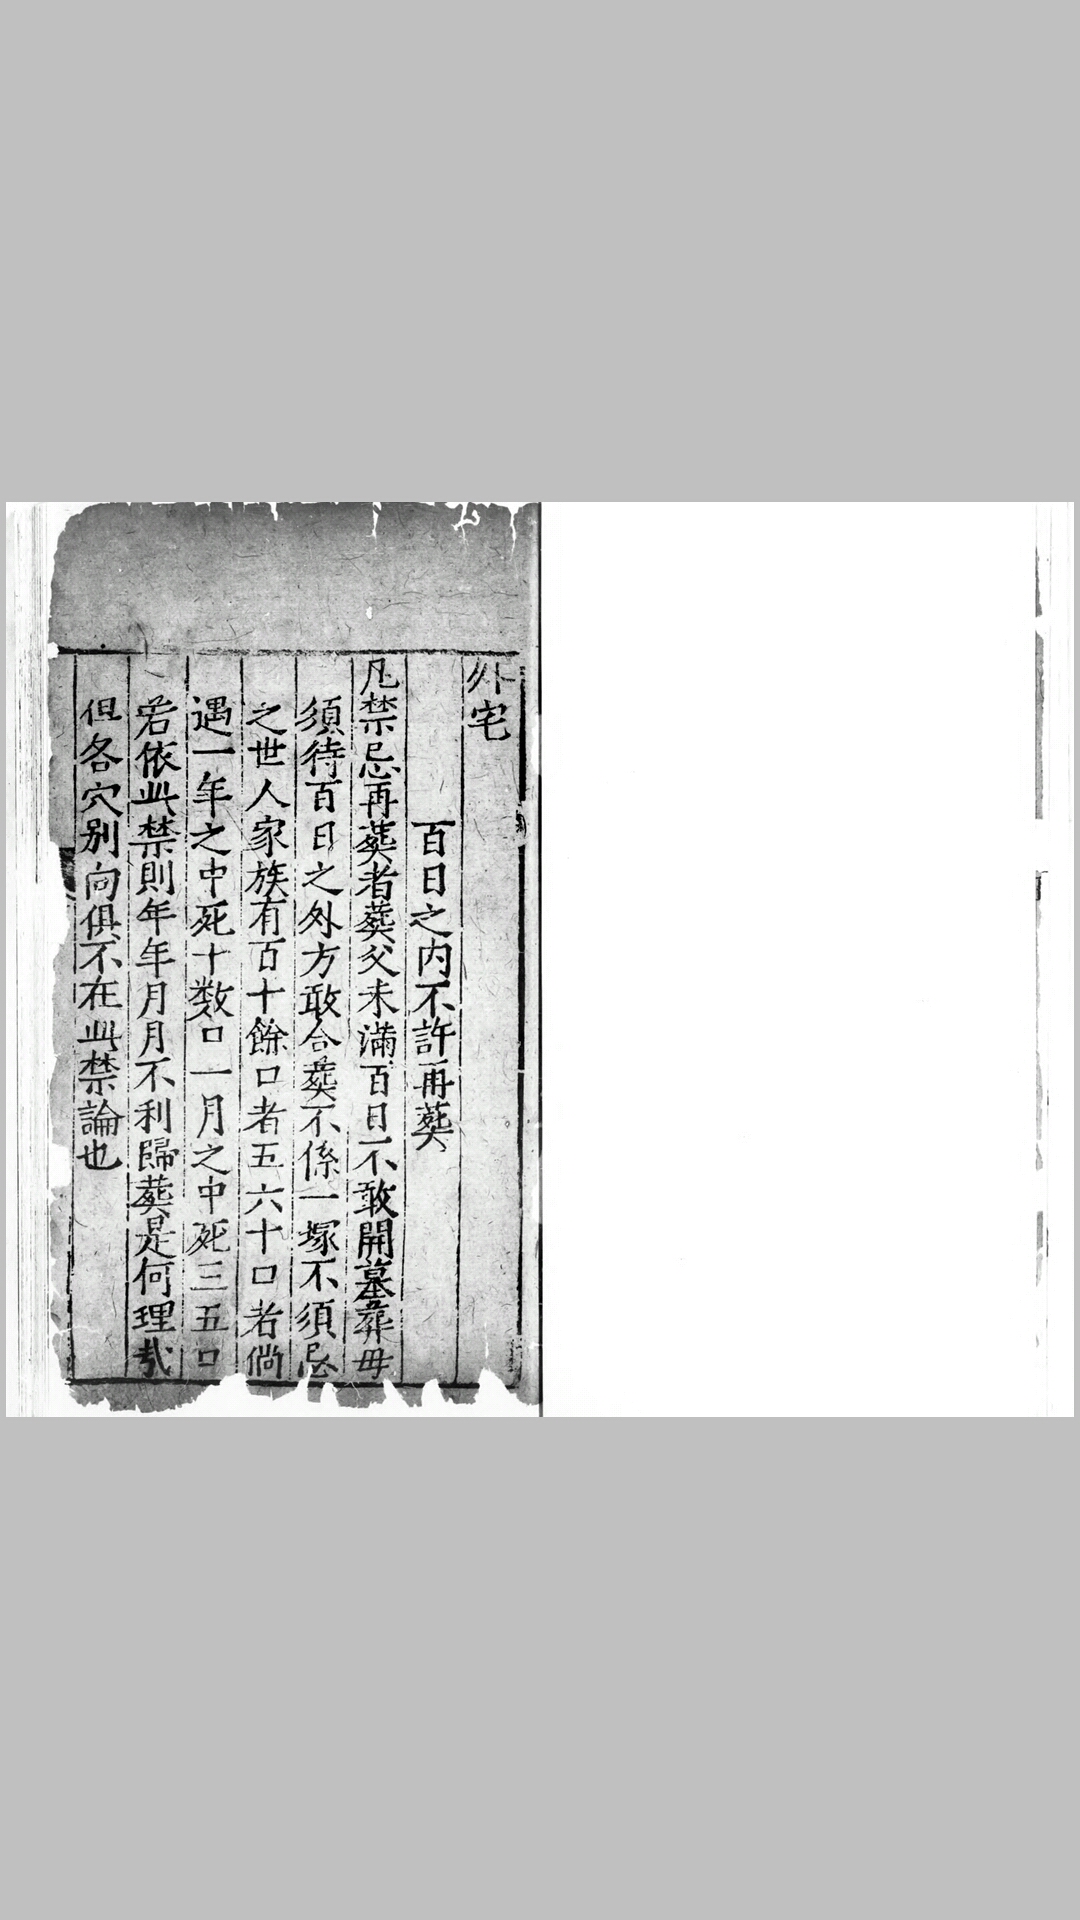 外宅
百日之內不許再葬
凡禁忌再葬者葬父未滿百日不敢開墓葬母
須待百日之外方敢合葬不係一塚不須忌
之世人家族有百十餘口者五六十口者倘
遇一年之中死十數口一月之中死三五口
若依此禁則年年月月不利歸葬是何理哉
但各穴别向俱不在此禁論也